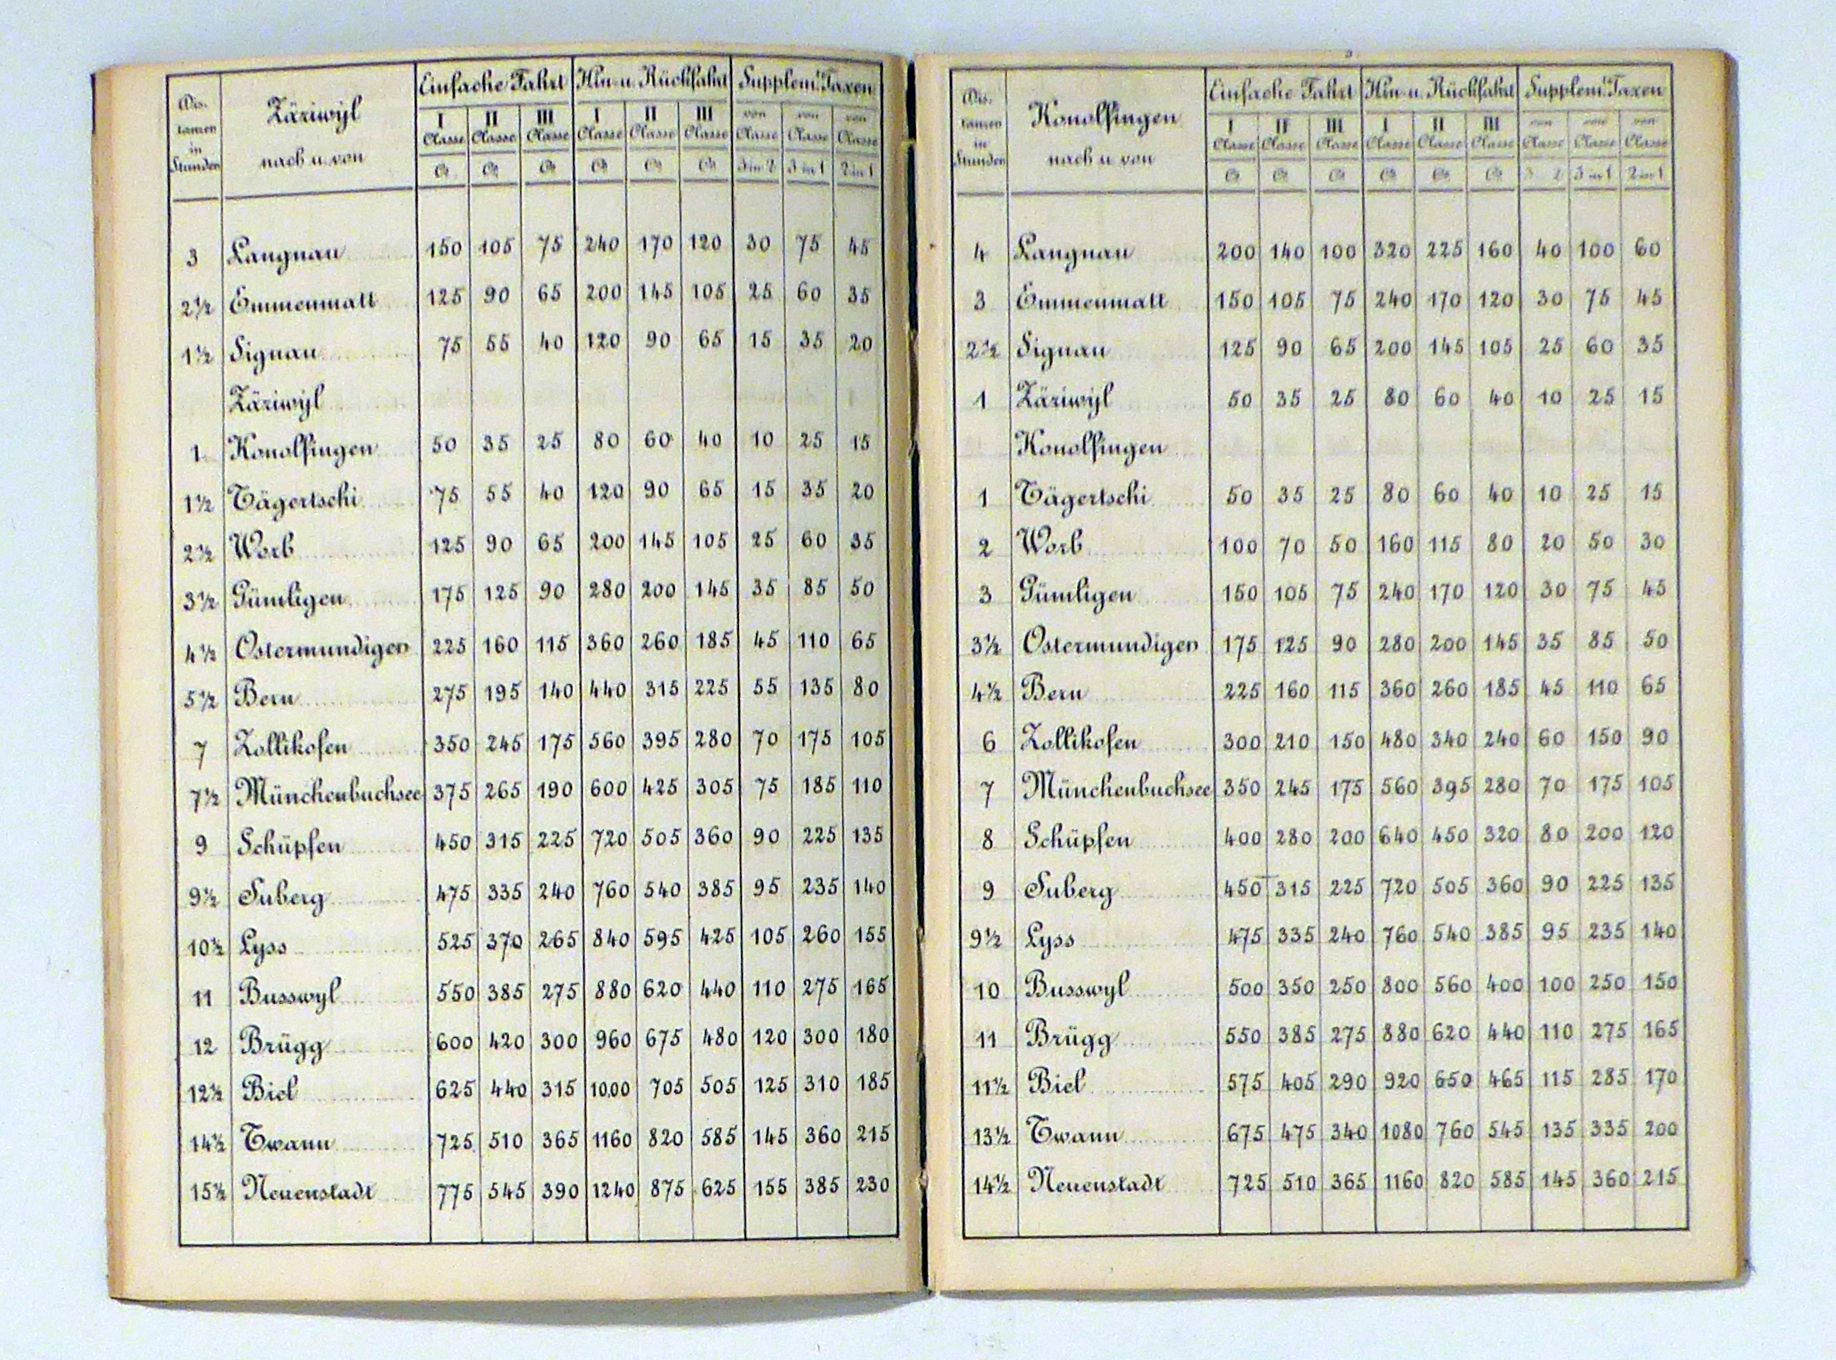 Dis- Zäziwÿl Einfache Fahrt Hin u. Rückfahrt Supplem. Taxen
tanzen I II III I II III von von von
in nach u. von Classe Classe Classe Classe Classe Classe Classe Classe Classe
Stunden Ct. Ct. Ct. Ct. Ct. Ct. 3 in 2 3 in 1 2 in 1
3 Langnau 150 105 75 240 170 120 30 75 45
2½ Emmenmatt 125 90 65 200 145 105 25 60 35
1½ Signau 75 55 40 120 90 65 15 35 20
Zäziwÿl
1 Konolfingen 50 35 25 80 60 40 10 25 15
1½ Tägertschi 75 55 40 120 90 65 15 35 20
2½ Worb 125 90 65 200 145 105 25 60 35
3½ Gümligen 175 125 90 280 200 145 35 85 50
4½ Ostermundigen 225 160 115 360 260 185 45 110 65
5½ Bern 275 195 140 440 315 225 55 135 80
7 Zollikofen 350 245 175 560 395 280 70 175 105
7½ Münchenbuchsee 375 265 190 600 425 305 75 185 110
9 Schüpfen 450 315 225 720 505 360 90 225 135
9½ Suberg 475 335 240 760 540 385 95 235 140
10½ Lyss 525 370 265 840 595 425 105 260 155
11 Busswyl 550 385 275 880 620 440 110 275 165
12 Brügg 600 420 300 960 675 480 120 300 180
12½ Biel 625 440 315 1000 705 505 125 310 185
14½ Twann 725 510 365 1160 820 585 145 360 215
15½ Neuenstadt 775 545 390 1240 875 625 155 385 230
Dis- Konolfingen Einfache Fahrt Hin u. Rückfahrt Supplem. Taxen
tanzen I II III I II III von von von
in nach u. von Classe Classe Classe Classe Classe Classe Classe Classe Classe
Stunden Ct. Ct. Ct. Ct. Ct. Ct. 3 2 3 in 1 2 in 1
4 Langnau 200 140 100 320 225 160 40 100 60
3 Emmenmatt 150 105 75 240 170 120 30 75 45
2½ Signau 125 90 65 200 145 105 25 60 35
1 Zäziwÿl 50 35 25 80 60 40 10 25 15
Konolfingen
1 Tägertschi 50 35 25 80 60 40 10 25 15
2 Worb 100 70 50 160 115 80 20 50 30
3 Gümligen 150 105 75 240 170 120 30 75 45
3½ Ostermundigen 175 125 90 280 200 145 35 85 50
4½ Bern 225 160 115 360 260 185 45 110 65
6 Zollikofen 300 210 150 480 340 240 60 150 90
7 Münchenbuchsee 350 245 175 560 395 280 70 175 105
8 Schüpfen 400 280 200 640 450 320 80 200 120
9 Suberg 450 315 225 720 505 360 90 225 135
9½ Lyss 475 335 240 760 540 385 95 235 140
10 Busswyl 500 350 250 800 560 400 100 250 150
11 Brügg 550 385 275 880 620 440 110 275 165
11½ Biel 575 405 290 920 650 465 115 285 170
13½ Twann 675 475 340 1080 760 545 135 335 200
14½ Neuenstadt 725 510 365 1160 820 585 145 360 215